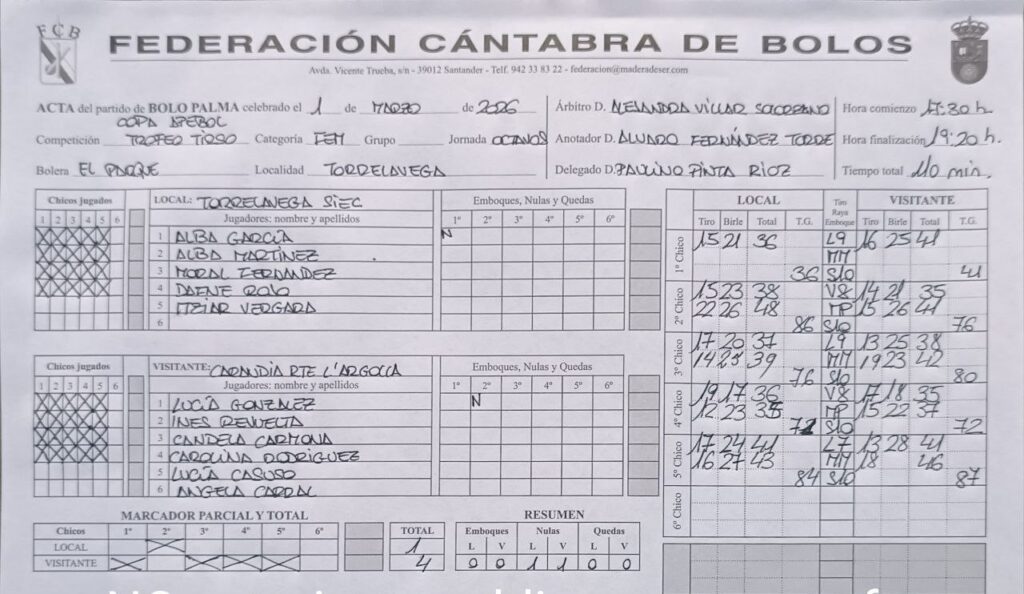 FCB
FEDERACIÓN CÁNTABRA DE BOLOS
Avda. Vicente Trueba, s/n - 39012 Santander - Telf. 942 33 83 22 - federacion@maderadeser.com
ACTA del partido de BOLO PALMA celebrado el 1 de MARZO de 2026
COPA APEBOL
Competición TROFEO TIRSO Categoría FEM Grupo Jornada OCTAVOS
Bolera EL PARQUE Localidad TORRELAVEGA
Árbitro D. ALEJANDRA VILLAR SOCORRANO
Anotador D. ALVARO FERNÁNDEZ TORRE
Delegado D. PAULINO PINTA RIOZ
Hora comienzo 17:30 h.
Hora finalización 19:20 h.
Tiempo total 110 min.
Chicos jugados LOCAL: TORRELAVEGA SIEC Emboques, Nulas y Quedas
1 2 3 4 5 6 Jugadores: nombre y apellidos 1º 2º 3º 4º 5º 6º
1 ALBA GARCÍA N
2 ALBA MARTÍNEZ
3 MORAL FERNANDEZ
4 DAENE ROLO
5 ITZIAR VERGARA
6
Chicos jugados VISITANTE: CARANDIA RTE L'ARGOLLA Emboques, Nulas y Quedas
1 2 3 4 5 6 Jugadores: nombre y apellidos 1º 2º 3º 4º 5º 6º
1 LUCÍA GONZALEZ N
2 INES REVUELTA
3 CANDELA CARMONA
4 CAROLINA RODRIGUEZ
5 LUCÍA CASUSO
6 ANGELA CARRAL
MARCADOR PARCIAL Y TOTAL
Chicos 1º 2º 3º 4º 5º 6º TOTAL
LOCAL X 1
VISITANTE X X X X 4
RESUMEN
Emboques Nulas Quedas
L V L V L V
0 0 1 1 0 0
LOCAL Tiro Raya Emboque VISITANTE
Tiro Birle Total T.G. Tiro Birle Total T.G.
1º Chico 15 21 36 L9 16 25 41
MM
36 S10 41
2º Chico 15 23 38 V8 14 21 35
22 26 48 MP 15 26 41
86 S10 76
3º Chico 17 20 37 L9 13 25 38
14 25 39 MM 19 23 42
76 S10 80
4º Chico 19 17 36 V8 17 18 35
12 23 35 MP 15 22 37
71 S10 72
5º Chico 17 24 41 L7 13 28 41
16 27 43 MM 18 46
84 S10 87
6º Chico